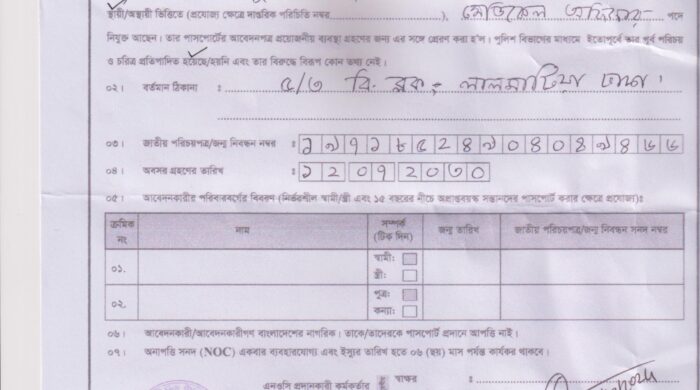 স্থায়ী/অস্থায়ী ভিত্তিতে (প্রযোজ্য ক্ষেত্রে দাপ্তরিক পরিচিতি নম্বর ..........................), মেডিকেল অফিসার পদে
নিযুক্ত আছেন। তার পাসপোর্টের আবেদনপত্র প্রয়োজনীয় ব্যবস্থা গ্রহণের জন্য এর সঙ্গে প্রেরণ করা হ'ল। পুলিশ বিভাগের মাধ্যমে ইতোপূর্বে তার পূর্ব পরিচয়
ও চরিত্র প্রতিপাদিত হয়েছে/হয়নি এবং তার বিরুদ্ধে বিরূপ কোন তথ্য নেই।
০২। বর্তমান ঠিকানা : ৫/৩ বি. ব্লক, লালমাটিয়া ঢাকা।
০৩। জাতীয় পরিচয়পত্র/জন্ম নিবন্ধন নম্বর :
০৪। অবসর গ্রহণের তারিখ : ১২০৭২০৩০
০৫। আবেদনকারীর পরিবারবর্গের বিবরণ (নির্ভরশীল স্বামী/স্ত্রী এবং ১৫ বছরের নীচে অপ্রাপ্তবয়স্ক সন্তানদের পাসপোর্ট করার ক্ষেত্রে প্রযোজ্য):
ক্রমিক নং নাম সম্পর্ক (টিক দিন) জন্ম তারিখ জাতীয় পরিচয়পত্র/জন্ম নিবন্ধন সনদ নম্বর
০১. স্বামী:
স্ত্রী:
০২. পুত্র:
কন্যা:
০৬। আবেদনকারী/আবেদনকারীগণ বাংলাদেশের নাগরিক। তাকে/তাদেরকে পাসপোর্ট প্রদানে আপত্তি নাই।
০৭। অনাপত্তি সনদ (NOC) একবার ব্যবহারযোগ্য এবং ইস্যুর তারিখ হতে ০৬ (ছয়) মাস পর্যন্ত কার্যকর থাকবে।
এনওসি প্রদানকারী কর্মকর্তার স্বাক্ষর :